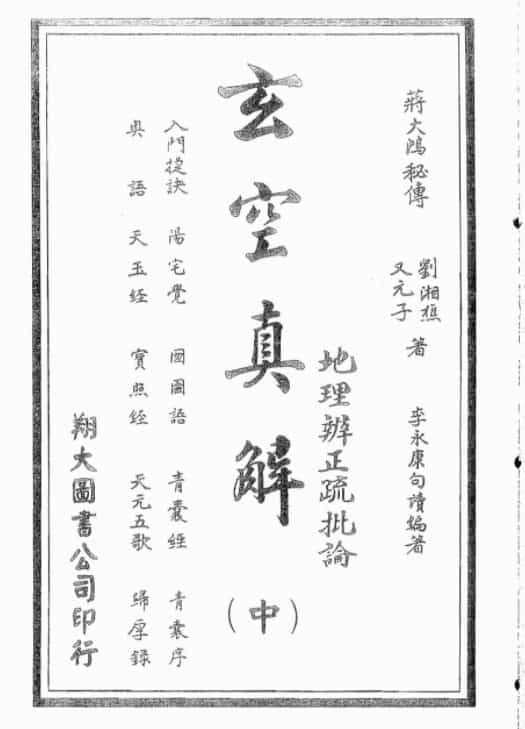 蔣大鴻秘傳
劉湘樵
又元子
著
李永康句讀編著
地理辨正疏批論
玄空真解
（中）
入門捷訣 陽宅覺 囝圖語 青囊經 青囊序
奥語 天玉経 寳照経 天元五歌 歸厚錄
翔大圖書公司印行